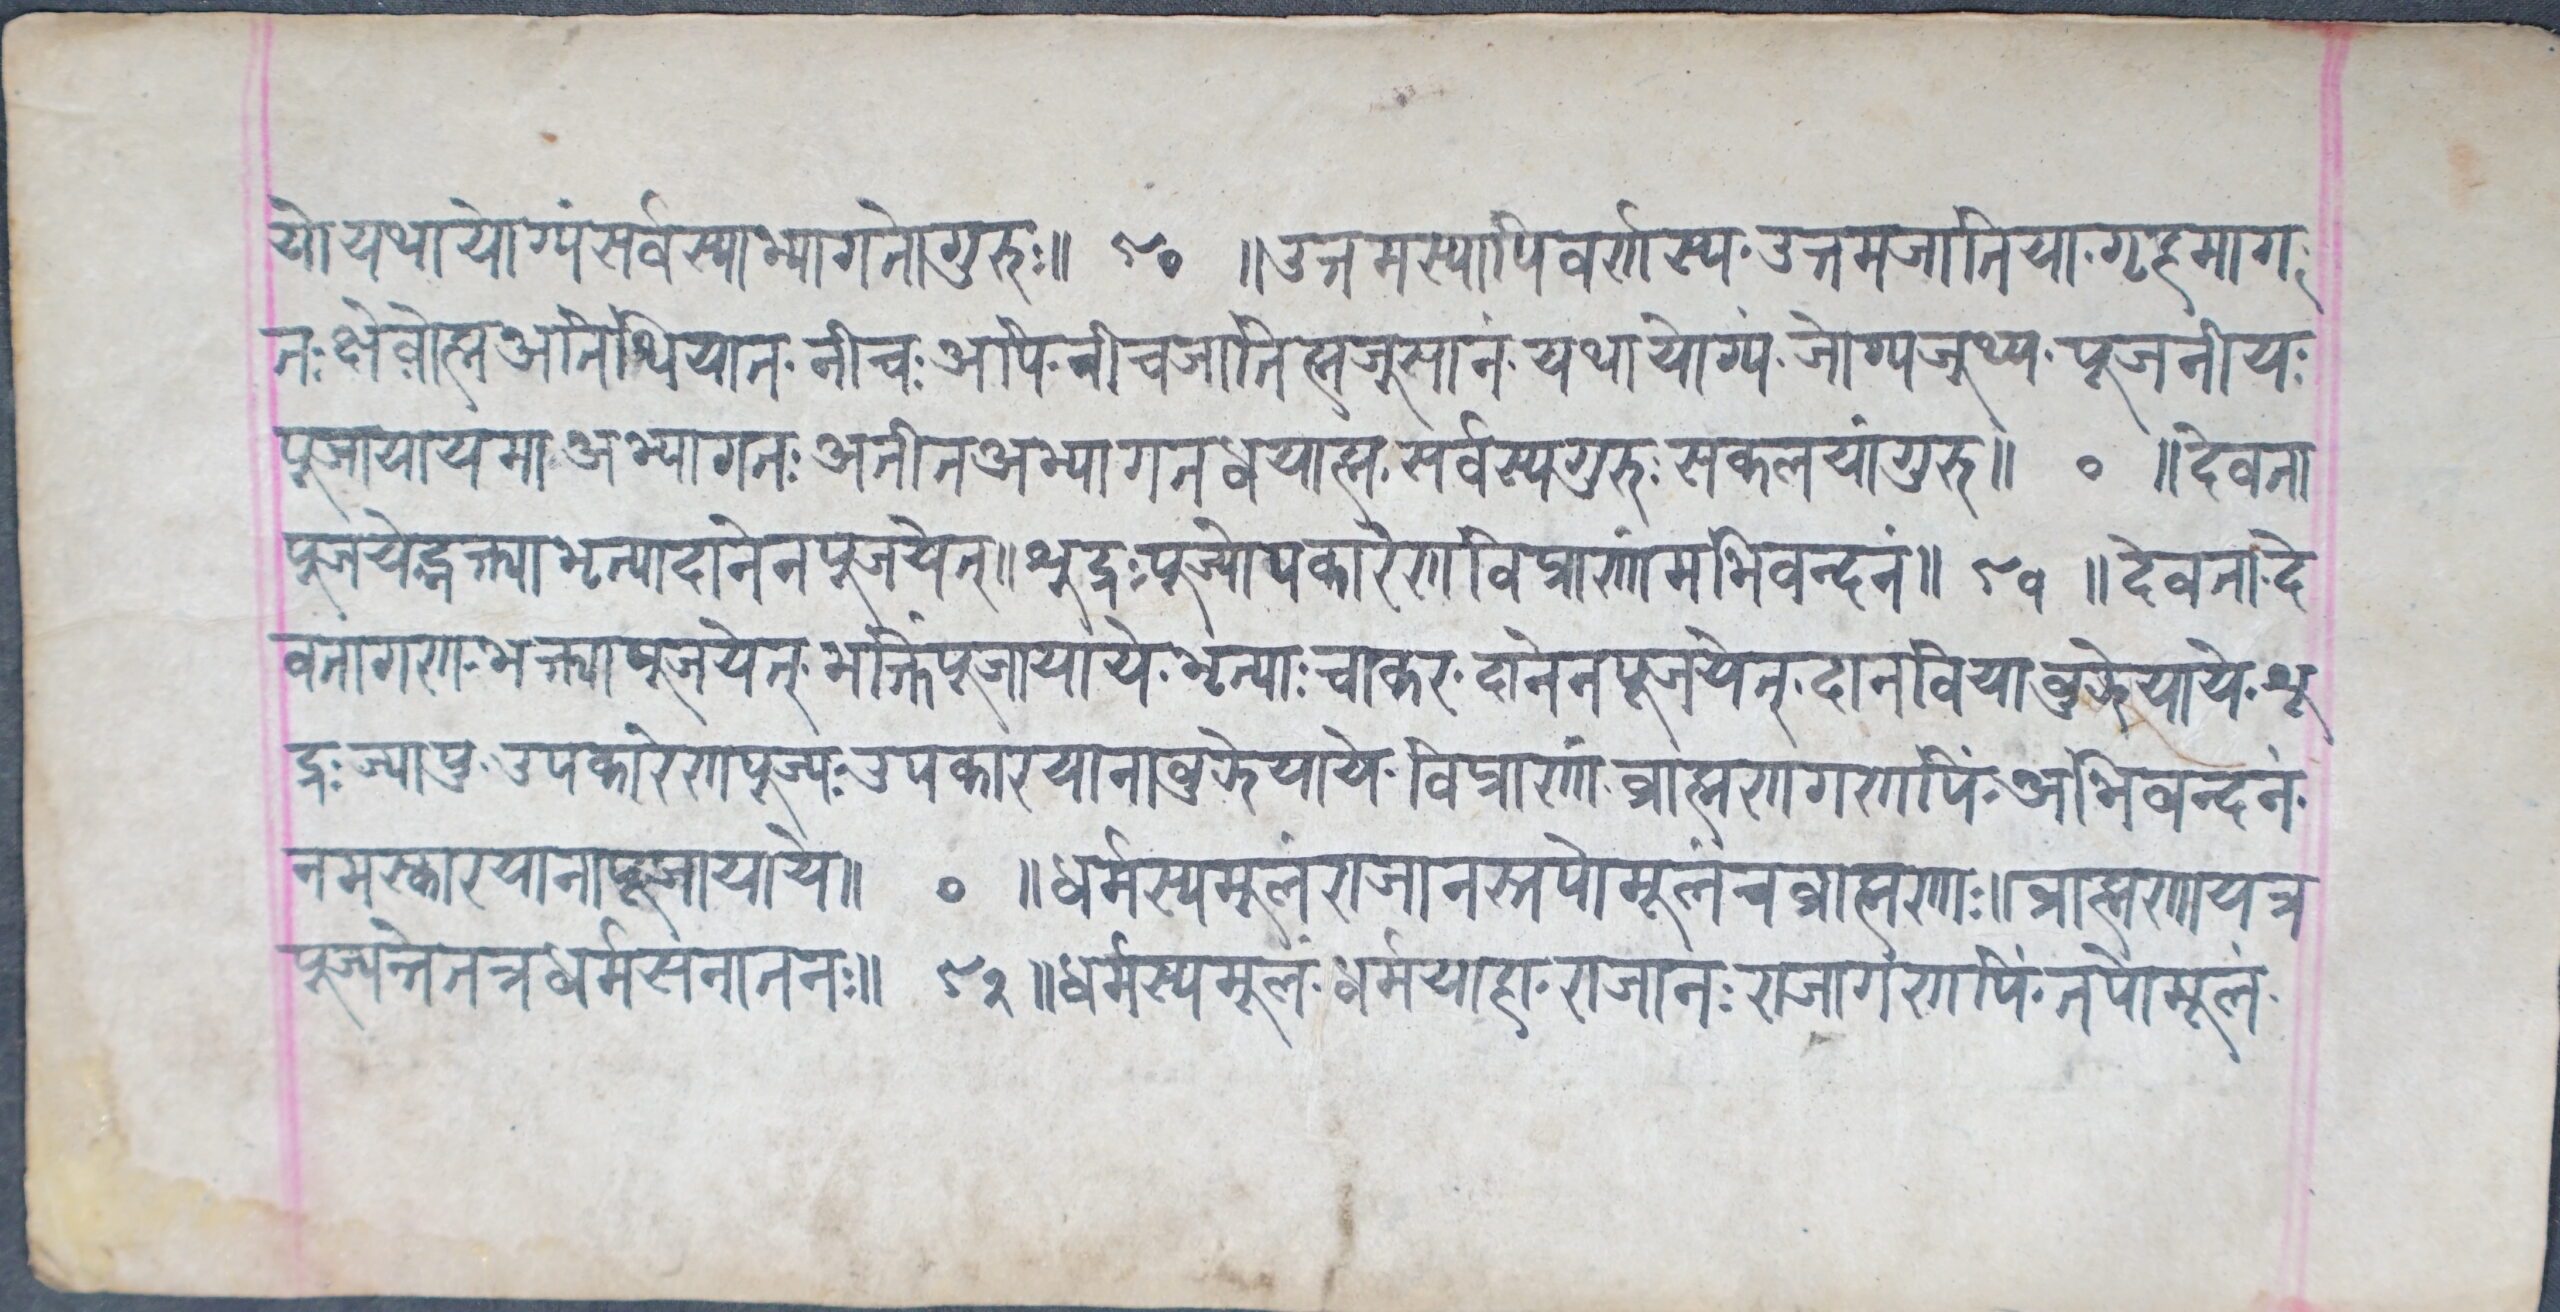 यो यथायोग्यं सर्वस्याभ्यागतो गुरुः॥ ९० ॥ उत्तमस्यापि वर्णस्य· उत्तमजातिया· गृहमाग
तः छेँवोह्म अतिथियात· नीचः अपि· नीचजाति ह्मजुसानं· यथायोग्यं· जोग्यजुथ्य· पूजनीयः
पूजायायमा· अभ्यागतः अतीत अभ्यागत धयाह्म· सर्वस्य गुरुः सकलयां गुरु॥ ० ॥ देवता
पूजयेद्भक्त्या भृत्या दानेन पूजयेत्॥ शूद्रः पूज्योपकारेण विप्राणांमभिवन्दनं॥ ९१ ॥ देवता· दे
वतागण· भक्त्या पूजयेत्· भक्तिं पूजायाये· भृत्याः चाकर· दानेन पूजयेत्· दान विया वुझेयाये· शू
द्रः ज्यापु· उपकारेण पूज्यः उपकार याना वुझेयाये· विप्राणां· ब्राह्मणगणपिं· अभिवन्दनं·
नमस्कार याना पूजायाये॥ ० ॥ धर्मस्य मूलं राजानस्तपोमूलं च ब्राह्मणाः॥ ब्राह्मणा यत्र
पूज्यन्ते तत्र धर्म सनातनः॥ ९२ ॥ धर्मस्य मूलं· धर्मया हा· राजानः राजागणपिं· तपोमूलं·